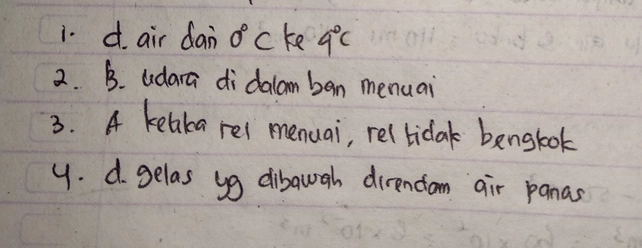 1. d. air dari 0°C ke 4°C
2. B. udara di dalam ban menuai
3. A ketika rel menuai, rel tidak bengkok
4. d. gelas yg dibawah direndam air panas